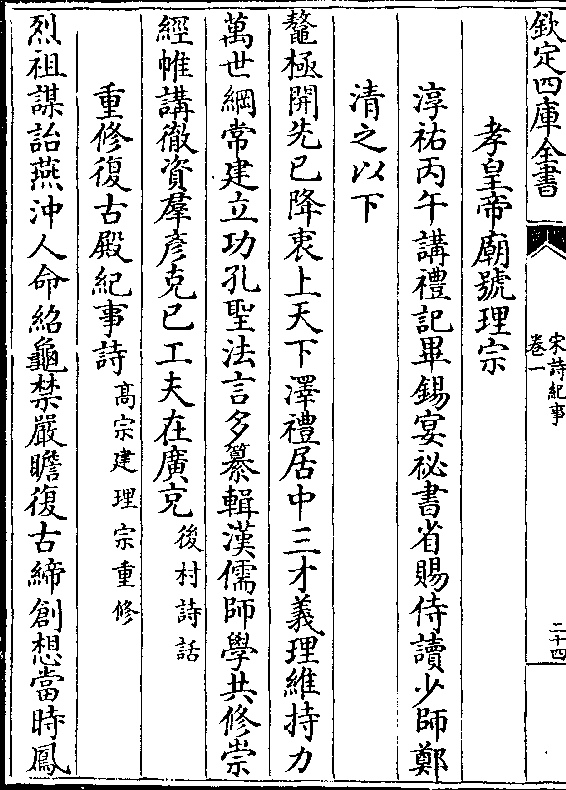 欽定四庫全書
宋詩紀事
卷一
二十四
孝皇帝廟號理宗
淳祐丙午講禮記畢錫宴祕書省賜侍讀少師鄭
清之以下
鼇極開先已降衷上天下澤禮居中三才義理維持力
萬世綱常建立功孔聖法言多纂輯漢儒師學共修崇
經帷講徹資羣彥克已工夫在廣充後村詩話
重修復古殿紀事詩高宗建理宗重修
烈祖謀詒燕沖人命紹龜禁嚴瞻復古締創想當時鳳